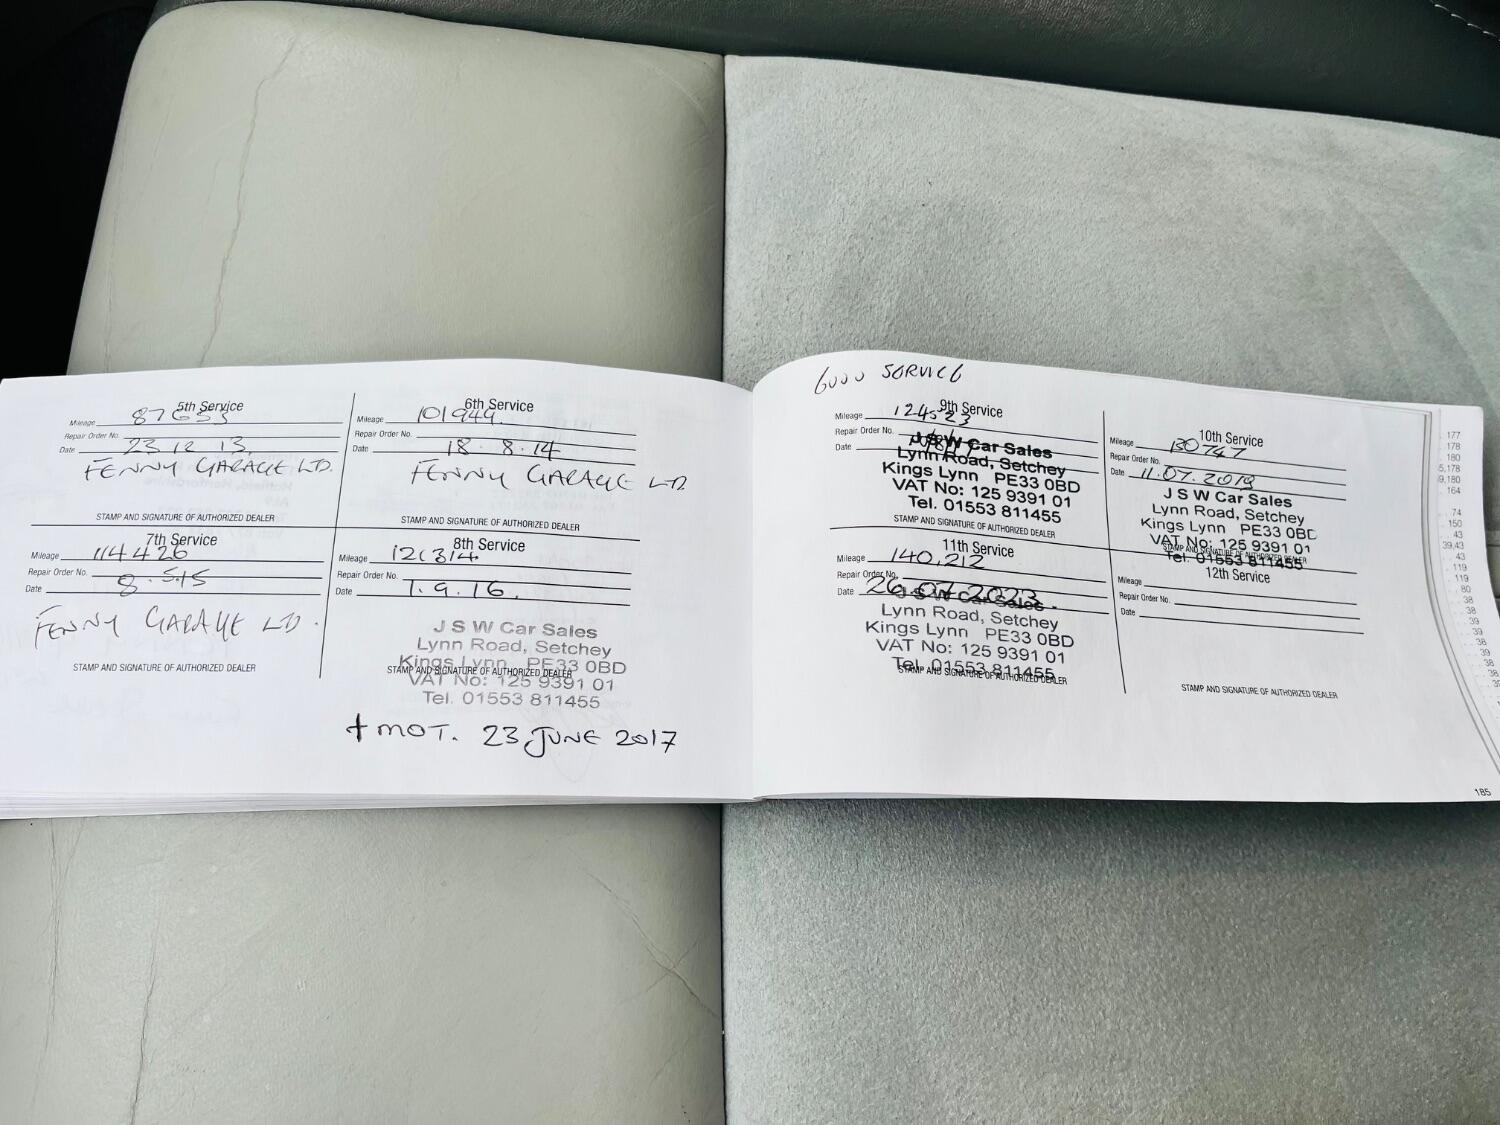 5th Service
Mileage 87653
Repair Order No.
Date 23 12 13.
FENNY GARAGE LTD.
STAMP AND SIGNATURE OF AUTHORIZED DEALER
6th Service
Mileage 101944.
Repair Order No.
Date 18.8.14
FENNY GARAGE LTD
STAMP AND SIGNATURE OF AUTHORIZED DEALER
7th Service
Mileage 114426
Repair Order No.
Date 8.5.15
FENNY GARAGE LTD.
STAMP AND SIGNATURE OF AUTHORIZED DEALER
8th Service
Mileage 121314
Repair Order No.
Date 1.9.16.
J S W Car Sales
Lynn Road, Setchey
Kings Lynn PE33 0BD
STAMP AND SIGNATURE OF AUTHORIZED DEALER
VAT No: 125 9391 01
Tel. 01553 811455
+ MOT. 23 JUNE 2017
SERVICE
9th Service
Mileage 124523
Repair Order No.
Date
J S W Car Sales
Lynn Road, Setchey
Kings Lynn PE33 0BD
VAT No: 125 9391 01
Tel. 01553 811455
STAMP AND SIGNATURE OF AUTHORIZED DEALER
10th Service
Mileage 130747
Repair Order No.
Date 11.07.2019
J S W Car Sales
Lynn Road, Setchey
Kings Lynn PE33 0BD
VAT No: 125 9391 01
STAMP AND SIGNATURE OF AUTHORIZED DEALER
Tel. 01553 811455
11th Service
Mileage 140,212
Repair Order No.
Date 26.07.2023
J S W Car Sales
Lynn Road, Setchey
Kings Lynn PE33 0BD
VAT No: 125 9391 01
Tel. 01553 811455
STAMP AND SIGNATURE OF AUTHORIZED DEALER
12th Service
Mileage
Repair Order No.
Date
STAMP AND SIGNATURE OF AUTHORIZED DEALER
177
178
180
5,178
9,180
164
74
150
43
39,43
43
119
119
80
38
38
39
39
38
39
38
38
185